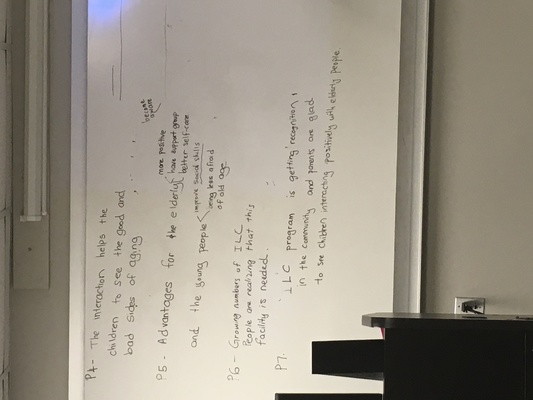 P4 - The interaction helps the
children to see the good and
bad sides of aging
P5 - Advantages for the elderly
more positive
have support group
better self-care
and the young people
improve social skills
being less afraid
of old age
P6 - Growing numbers of ILC
People are realizing that this
facility is needed.
P7.
ILC program is getting recognition,
in the community and parents are glad
to see children interacting positively with elderly people.